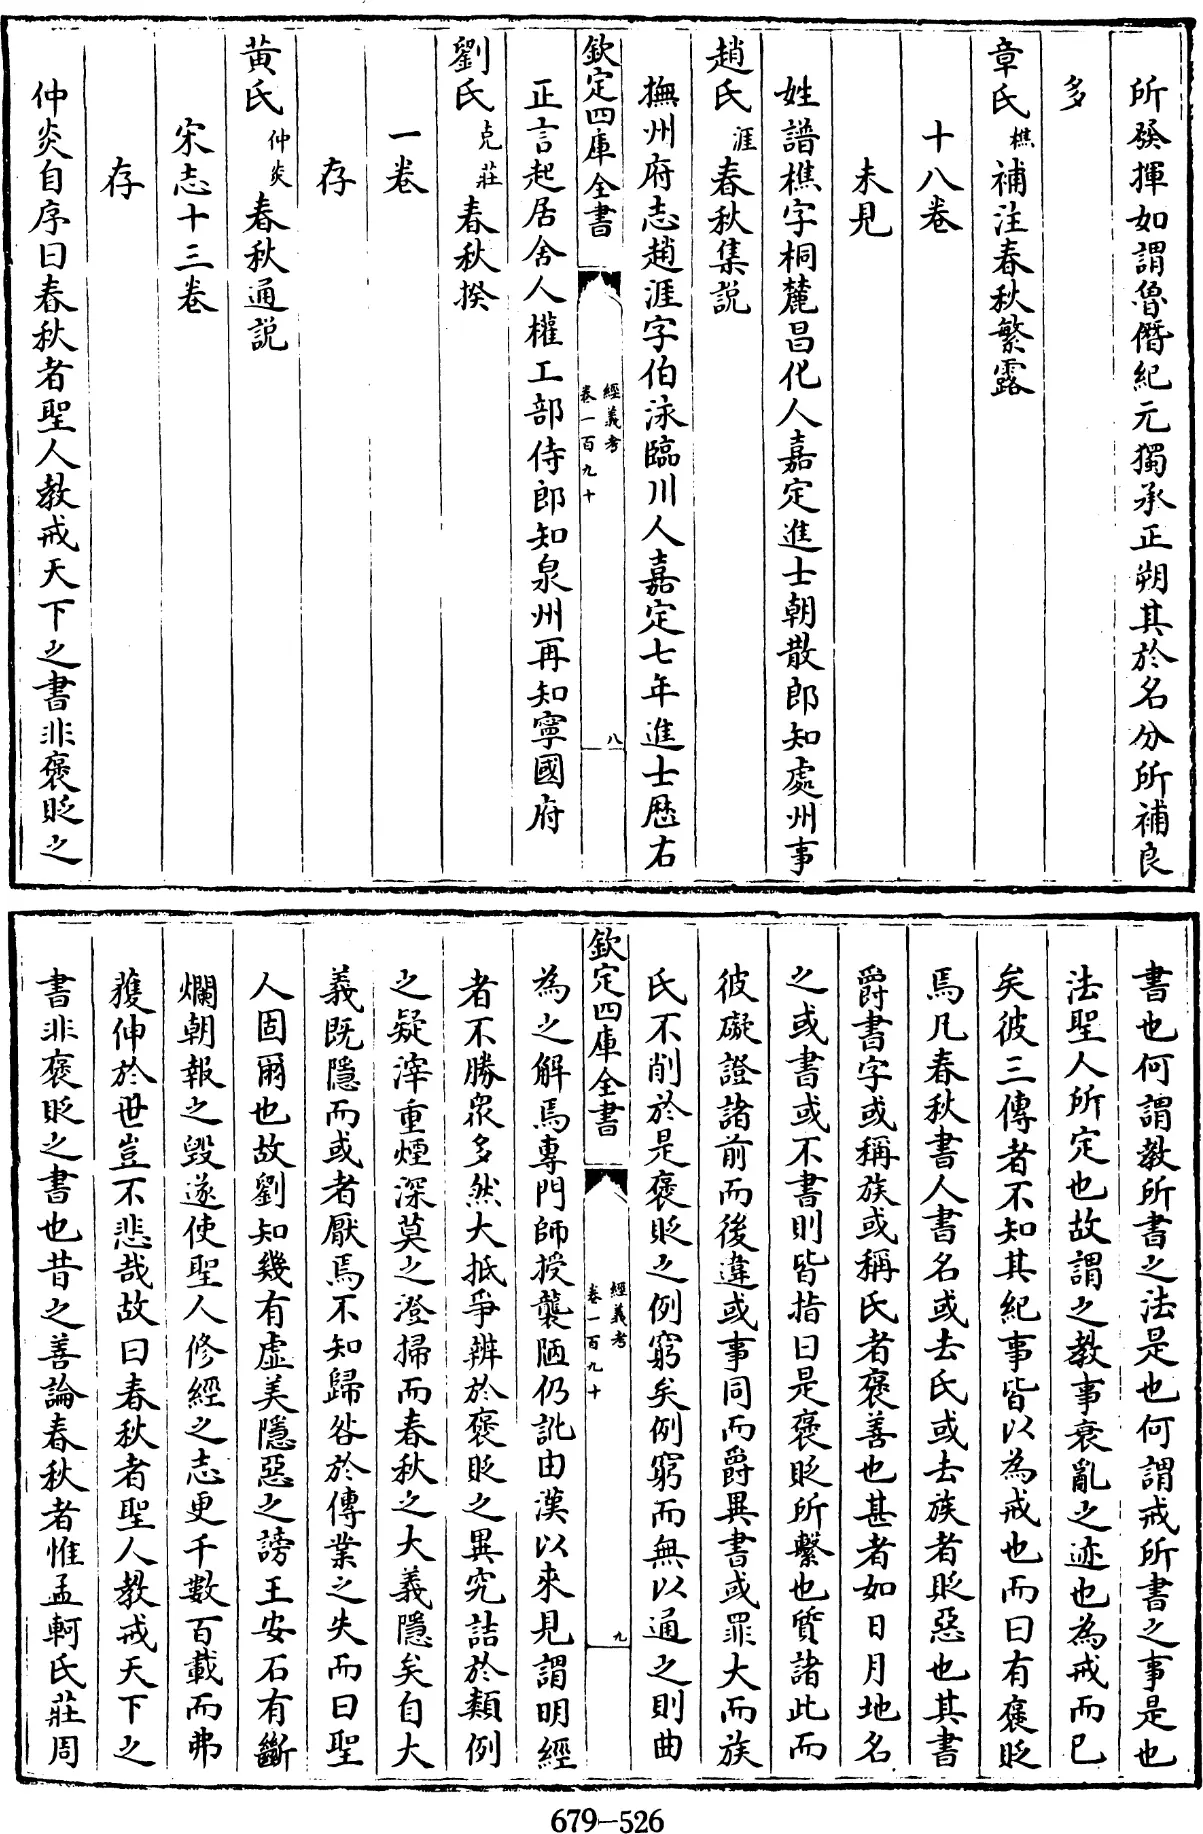 所發揮如謂魯僭紀元獨承正朔其於名分所補良
多
章氏樵補注春秋繁露
十八卷
未見
姓譜樵字桐麓昌化人嘉定進士朝散郎知處州事
趙氏涯春秋集説
撫州府志趙涯字伯泳臨川人嘉定七年進士歴右
欽定四庫全書
經義考
卷一百九十
八
正言起居舍人權工部侍郎知泉州再知寧國府
劉氏克莊春秋揆
一卷
存
黄氏仲炎春秋通説
宋志十三卷
存
仲炎自序曰春秋者聖人教戒天下之書非褒貶之
書也何謂教所書之法是也何謂戒所書之事是也
法聖人所定也故謂之教事衰亂之迹也為戒而已
矣彼三傳者不知其紀事皆以為戒也而曰有褒貶
焉凡春秋書人書名或去氏或去族者貶惡也其書
爵書字或稱族或稱氏者褒善也甚者如日月地名
之或書或不書則皆指曰是褒貶所繫也質諸此而
彼礙證諸前而後違或事同而爵異書或罪大而族
氏不削於是褒貶之例窮矣例窮而無以通之則曲
欽定四庫全書
經義考
卷一百九十
九
為之解焉專門師授襲陋仍訛由漢以來見謂明經
者不勝衆多然大抵爭辨於褒貶之異究詰於類例
之疑滓重煙深莫之澄掃而春秋之大義隱矣自大
義既隱而或者厭焉不知歸咎於傳業之失而曰聖
人固爾也故劉知幾有虛美隱惡之謗王安石有斷
爛朝報之毁遂使聖人修經之志更千數百載而弗
獲伸於世豈不悲哉故曰春秋者聖人教戒天下之
書非褒貶之書也昔之善論春秋者惟孟軻氏莊周
679-526